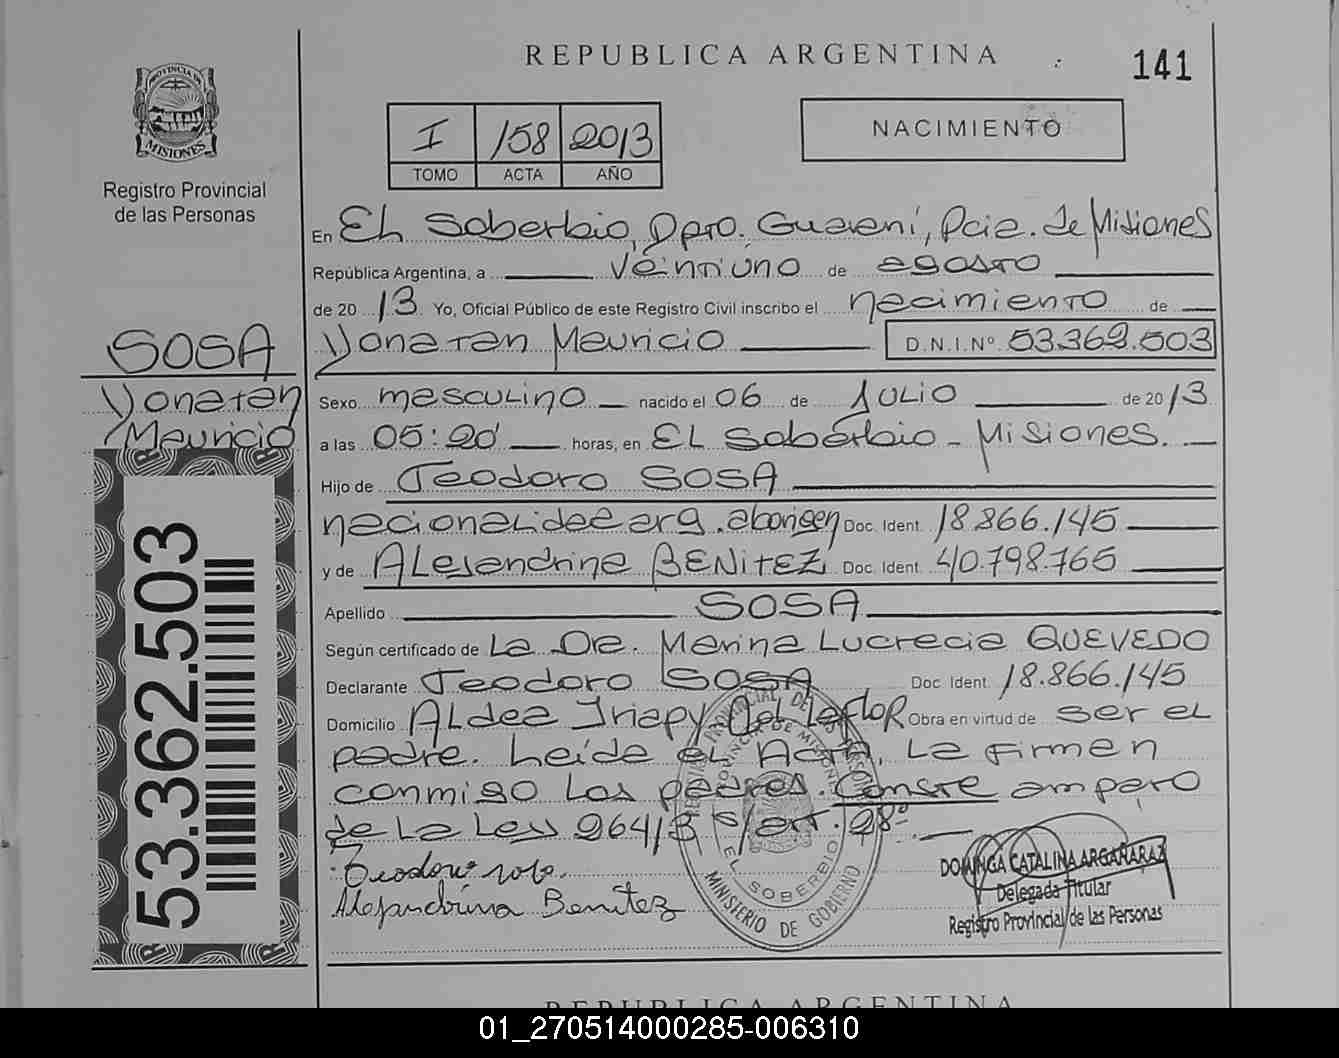 REPUBLICA ARGENTINA
141
PROVINCIA DE
MISIONES
Registro Provincial
de las Personas
I 158 2013
TOMO ACTA AÑO
NACIMIENTO
En El Soberbio, Dpto. Guaraní, Pcia. de Misiones
República Argentina, a veintiuno de agosto
de 2013 Yo, Oficial Público de este Registro Civil inscribo el nacimiento de
Yonatan Mauricio D.N.I.Nº 53.362.503
SOSA
Yonatan
Mauricio
53.362.503
Sexo masculino nacido el 06 de Julio de 2013
a las 05:20 horas, en El Soberbio - Misiones.
Hijo de Teodoro SOSA
nacionalidad arg. aborigen Doc. Ident. 18.866.145
y de Alejandrina BENITEZ Doc. Ident. 40.798.765
Apellido SOSA
Según certificado de La Dra. Marina Lucrecia QUEVEDO
Declarante Teodoro SOSA Doc. Ident. 18.866.145
Domicilio Aldea Iriapy Del Leflor Obra en virtud de ser el
padre. Leída el Acta, La firman
conmigo los padres. Conste amparo
de La Ley 264/3 s/art. 28º
Teodoro sosa.
Alejandrina Benitez
EL SOBERBIO
MINISTERIO DE GOBIERNO
DOMINGA CATALINA ARGAÑARAZ
Delegada Titular
Registro Provincial de las Personas
REPUBLICA ARGENTINA
01_270514000285-006310